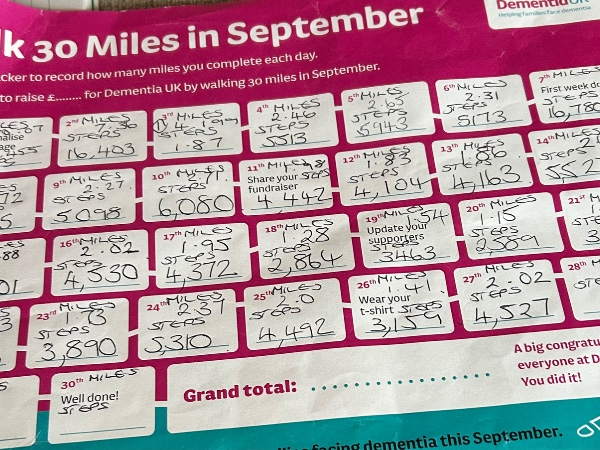 lk 30 Miles in September
DementiaUK
Helping families face dementia
cker to record how many miles you complete each day.
to raise £........ for Dementia UK by walking 30 miles in September.
2nd MILES
STEPS
16,403
3rd MILES
STEPS
1.87
4th MILES
2.46
STEPS
5513
5th MILES
2.65
STEPS
5943
6th MILES
2.31
STEPS
5173
7th MILES
First week do
STEPS
16,780
72
5
9th MILES
2.27
STEPS
5098
10th MILES
STEPS
6,080
11th MILES
Share your STEPS
fundraiser
4442
12th MILES
1.83
STEPS
4,104
13th MILES
1.86
STEPS
4,163
14th MILES
STEPS
.88
01
16th MILES
2.02
STEPS
4,330
17th MILES
1.95
STEPS
4,372
18th MILES
1.28
STEPS
2,864
19th MILES
1.54
Update your
supporters
STEPS
3463
20th MILES
1.15
STEPS
2589
21st M
23rd MILES
1.73
STEPS
3,890
24th MILES
2.37
STEPS
5,310
25th MILES
2.0
STEPS
4,492
26th MILES
1.41
Wear your
t-shirt STEPS
3,159
27th MILES
2.02
STEPS
4,527
28th M
STE
30th MILES
Well done!
STEPS
Grand total:
A big congratu
everyone at D
You did it!
facing dementia this September.